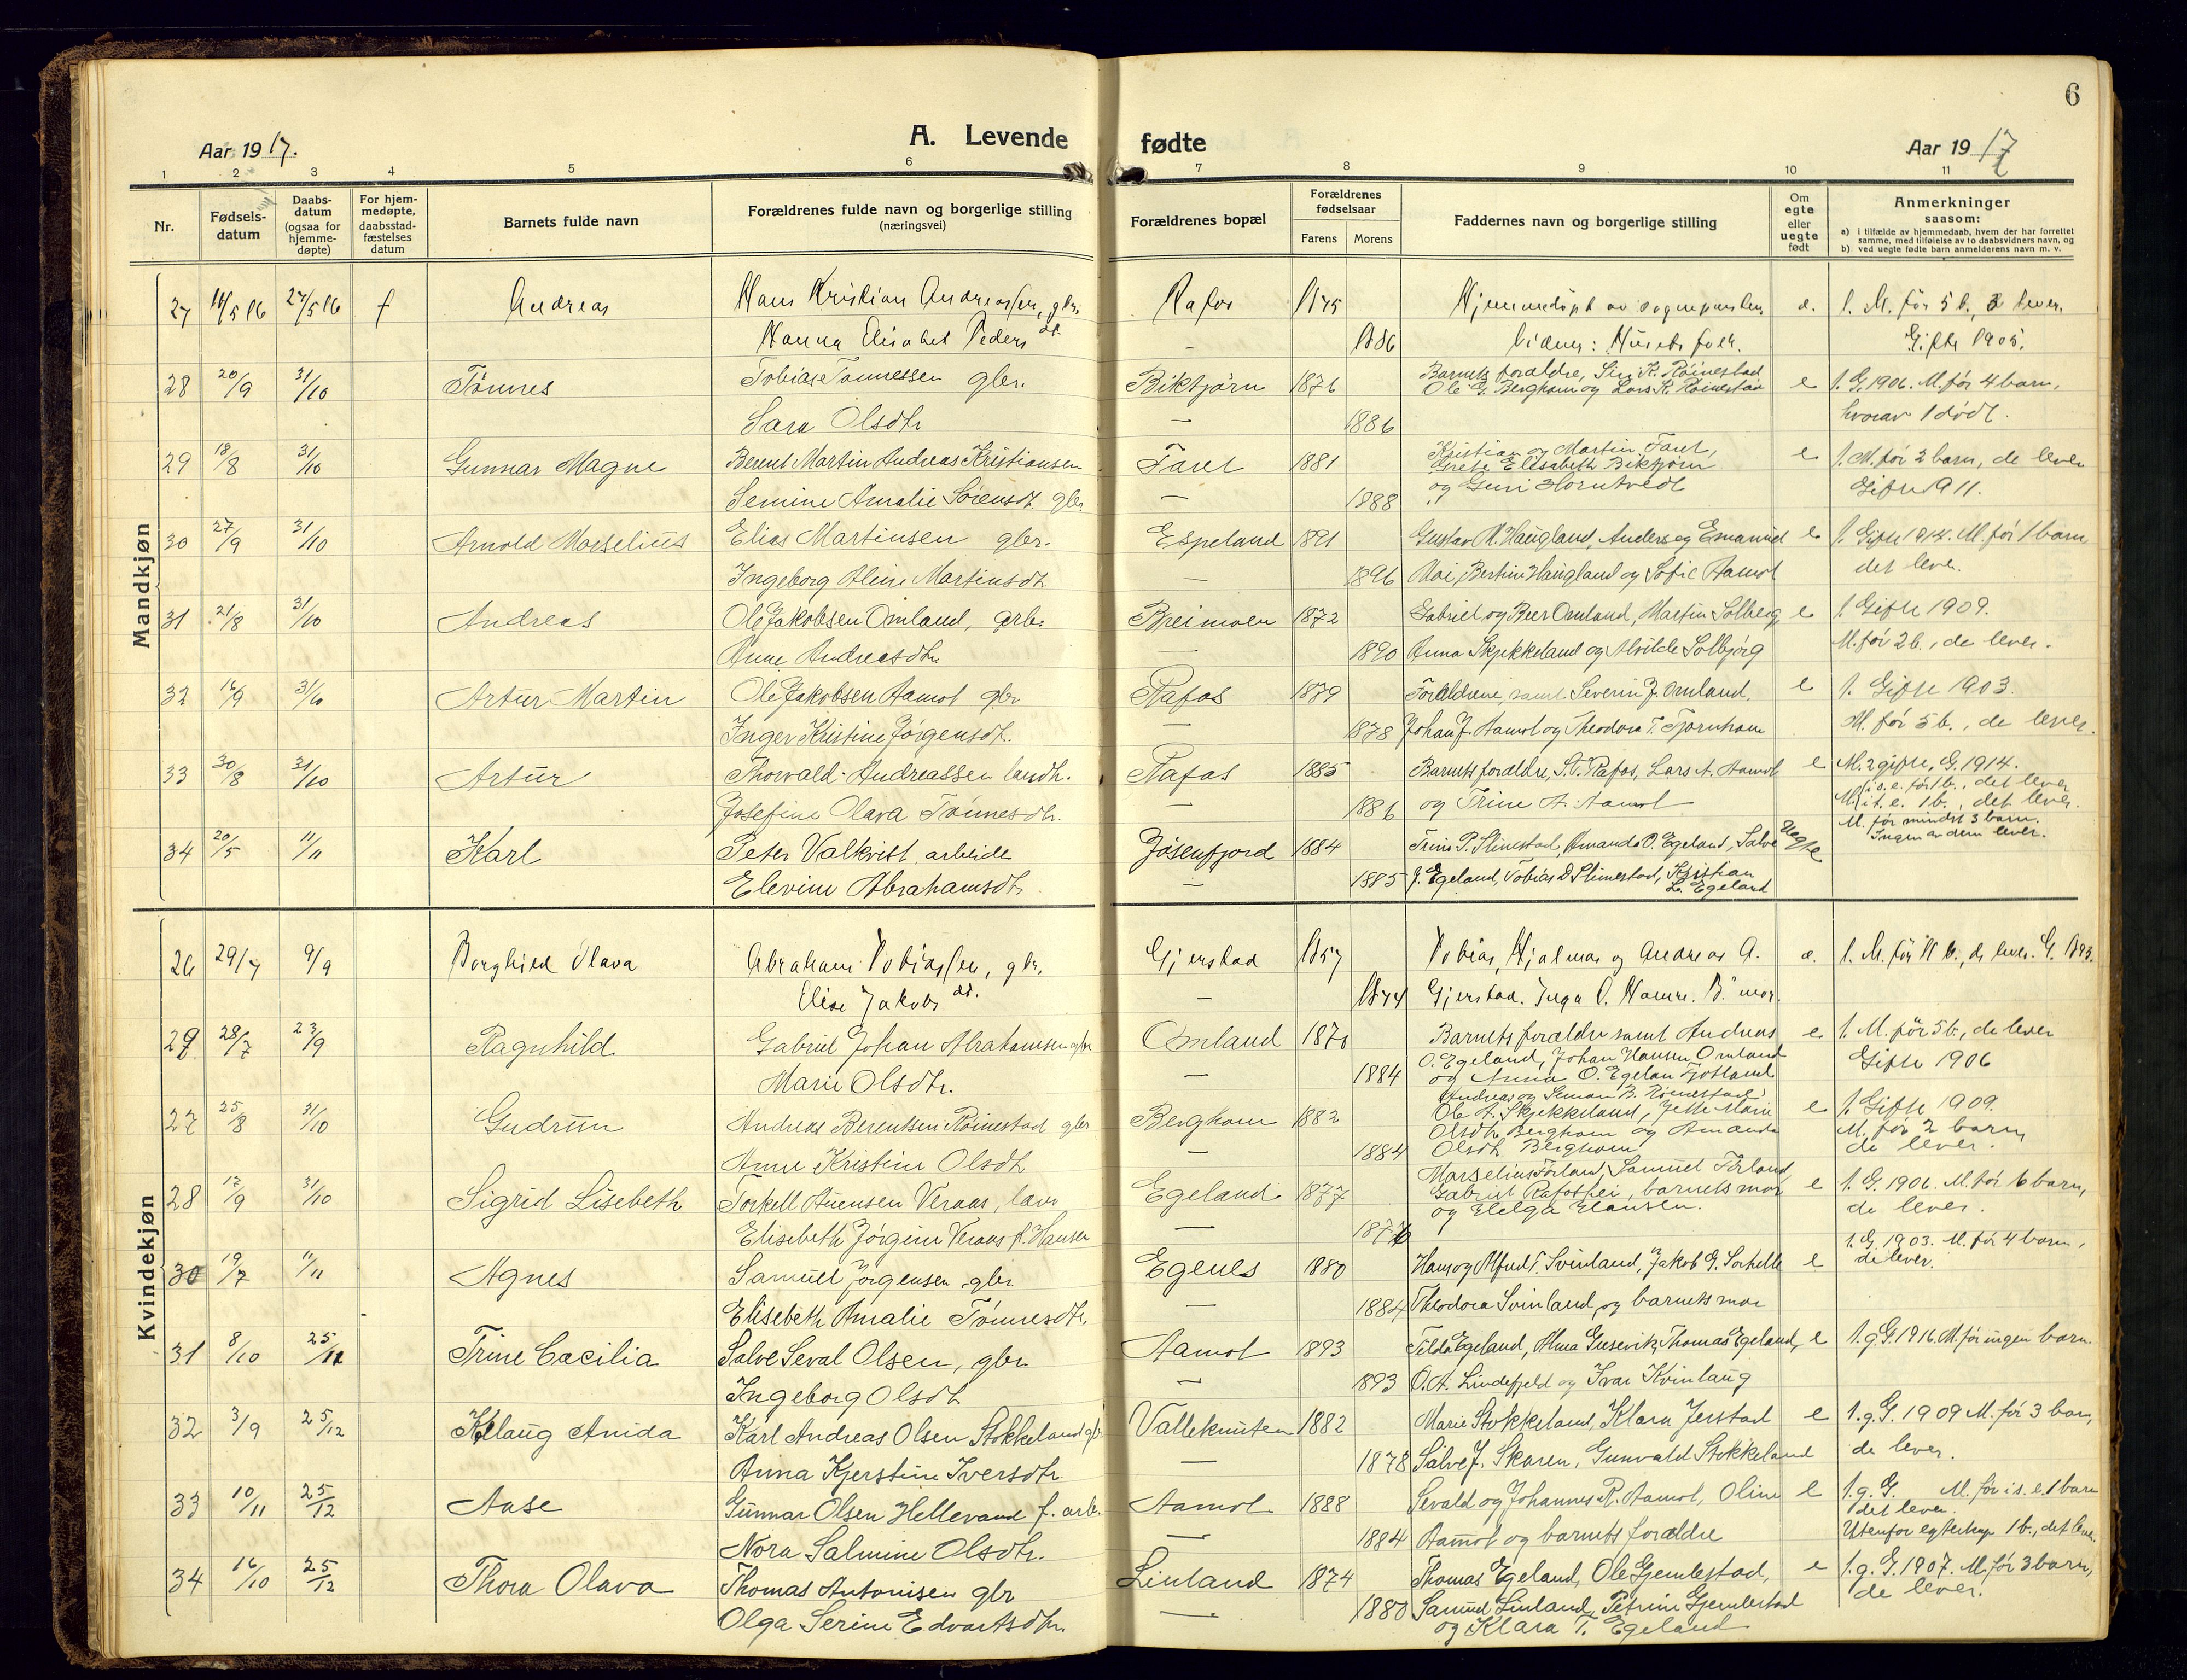 6
Aar 1917.
A. Levende fødte
Aar 1917
1 2 3 4 5 6 7 8 9 10 11
Nr.
Fødsels-datum
Daabs-datum (ogsaa for hjemme-døpte)
For hjem-medøpte, daabsstad-fæstelses datum
Barnets fulde navn
Forældrenes fulde navn og borgerlige stilling (næringsvei)
Forældrenes bopæl
Forældrenes fødselsaar
Farens Morens
Faddernes navn og borgerlige stilling
Om egte eller uegte født
Anmerkninger saasom:
a) i tilfælde av hjemmedaab, hvem der har forrettet samme, med tilføielse av to daabsvidners navn, og
b) ved uegte fødte barn anmelderens navn m. v.
Mandkjøn
27 14/5 16 27/5 16 f Andreas Hans Kristian Andreassen, gbr. Rafos 1875 Hjemmedøpt av sognepresten e. 1. M. før 5 b., lever.
Hanna Elisabet Peders dt. — 1886 Vidner: Husets folk. Gifte 1905.
28 20/9 31/10 Tønnes Tobias Tønnessen gbr. Biktjørn 1876 Barnets forældre, Siri K. Røinestad e 1. G. 1906. M. før 4 barn,
Ole G. Berghom og Lars K. Røinestad
Sara Olsdtr — 1886 hvorav 1 dødt.
29 18/8 31/10 Gunnar Magne Berent Martin Andreas Kristiansen Faret 1881 Kristian og Martin Faret, e 1. M. før 2 barn, de lever
Grete Elisabeth Biktjørn
Semine Amalie Sørensdt gbr. — 1888 og Guri Horntvedt Gifte 1911.
30 27/9 31/10 Arnold Marselius Elias Martinsen gbr. Espeland 1891 Gustav M. Haugland, Anders og Emanuel e 1. Gifte 1914. M. før 1 barn
Ingeborg Aline Martinsdt — 1896 Moi, Bertine Haugland og Sofie Aamot det lever.
31 21/8 31/10 Andreas Ole Jakobsen Omland, arb. Breimoen 1872 Gabriel og Beer Omland, Martin Solberg e 1. Gifte 1909.
Anne Andreasdtr — 1890 Anna Skjekkeland og Alvilde Solbjørg M. før 2 b., de lever.
32 16/9 31/10 Artur Martin Ole Jakobsen Aamot gbr Rafos 1879 Forældrene samt Severin J. Omland, e 1. Gifte 1903.
Inger Kristine Jørgensdt. — 1878 Johan J. Aamot og Theodora T. Tjørnhom M. før 5 b., de lever.
33 30/8 31/10 Artur Thorvald Andreassen landh. Rafos 1885 Barnets forældre, S. T. Rafos, Lars A. Aamot e M. 2 gifte, G. 1914.
i s. e. før 1 b., det lever
Josefine Olava Tønnesdtr. — 1886 og Trine A. Aamot M. i t. e. 1 b., det lever.
34 20/5 11/11 Karl Peter Valkvist, arbeide Jøsenfjord 1884 Trine P. Slimestad, Amanda O. Egeland, Salve Uegte M. før mindst 3 barn.
Ingen av dem lever.
Elevine Abrahamsdtr. — 1885 J. Egeland, Tobias D Slimestad, Kristian
L. Egeland
Kvindekjøn
26 29/7 9/9 Borghild Olava Abraham Tobiassen, gbr. Gjerstad 1857 Tobias, Hjalmar og Andreas A. e. 1. M. før 11 b., de lever. G. 1893.
Elise Jakobs dt. — 1874 Gjerstad. Inga O. Hamre. B. mor.
29 28/7 23/9 Ragnhild Gabriel Johan Abrahamsen gbr Omland 1870 Barnets forældre samt Andreas e 1. M. før 5 b., de lever
O. Egeland, Johan Hansen Omland
Marie Olsdtr. — 1884 og Anna O. Egeland Gifte 1906
27 25/8 31/10 Gudrun Andreas Berentsen Røinestad gbr Berghom 1882 Andreas og Simon B. Røinestad e 1. Gifte 1909.
Ole A. Skjekkeland, Jette Marie
Olsdtr Berghom og Amanda M. før 2 barn
Anne Kristine Olsdt — 1884 Olsdt Berghom de lever.
28 17/9 31/10 Sigrid Lisebeth Torkell Auensen Veraas, Egeland 1877 Marselius Førland, Samuel Førland e 1. G. 1906. M. før 6 barn,
Gabriel Rafoshei, barnets mor
Elisebeth Jørgine Veraas f. Hansen — 1876 og Helga Hansen. de lever.
30 19/7 11/11 Agnes Samuel Jørgensen gbr Egenes 1880 Hans og Alfred T. Svinland, Jakob G. Sorhelle e 1. G. 1903. M. før 4 barn,
de lever.
Elisebeth Amalie Tønnesdtr. — 1884 Theodora Svinland, og barnets mor
31 8/10 25/12 Trine Cæcilia Salve Seval Olsen, gbr. Aamot 1893 Tilda Egeland, Alma Gusevik, Thomas Egeland, e 1. g. G. 1916. M. før ingen barn.
Ingeborg Olsdt — 1893 O. A. Lindefjeld og Ivar Kvinlaug
32 3/9 25/12 Klaug Anida Karl Andreas Olsen Stokkeland gbr Valleknuten 1882 Marie Stokkeland, Klara Jerstad e 1. g. G. 1909 M. før 3 barn,
Anna Kjerstine Iversdtr. — 1878 Salve J. Skaren, Gunvald Stokkeland de lever.
33 10/11 25/12 Aase Gunnar Olsen Hellevand f. arb. Aamot 1888 Sevald og Johannes R. Aamot, Oline e 1. g. G. M. før i s. e. 1 barn
det lever.
Nora Salmine Olsdtr. — 1884 Aamot og barnets forældre Utenfor egteskap 1 b., det lever.
34 16/10 25/12 Thora Olava Thomas Antonisen gbr Linland 1874 Thomas Egeland, Ole Gjemlestad, e 1. g. G. 1907. M. før 3 barn,
Olga Serine Edvartsdtr. — 1880 Samuel Linland, Petrine Gjemlestad de lever.
og Klara T. Egeland